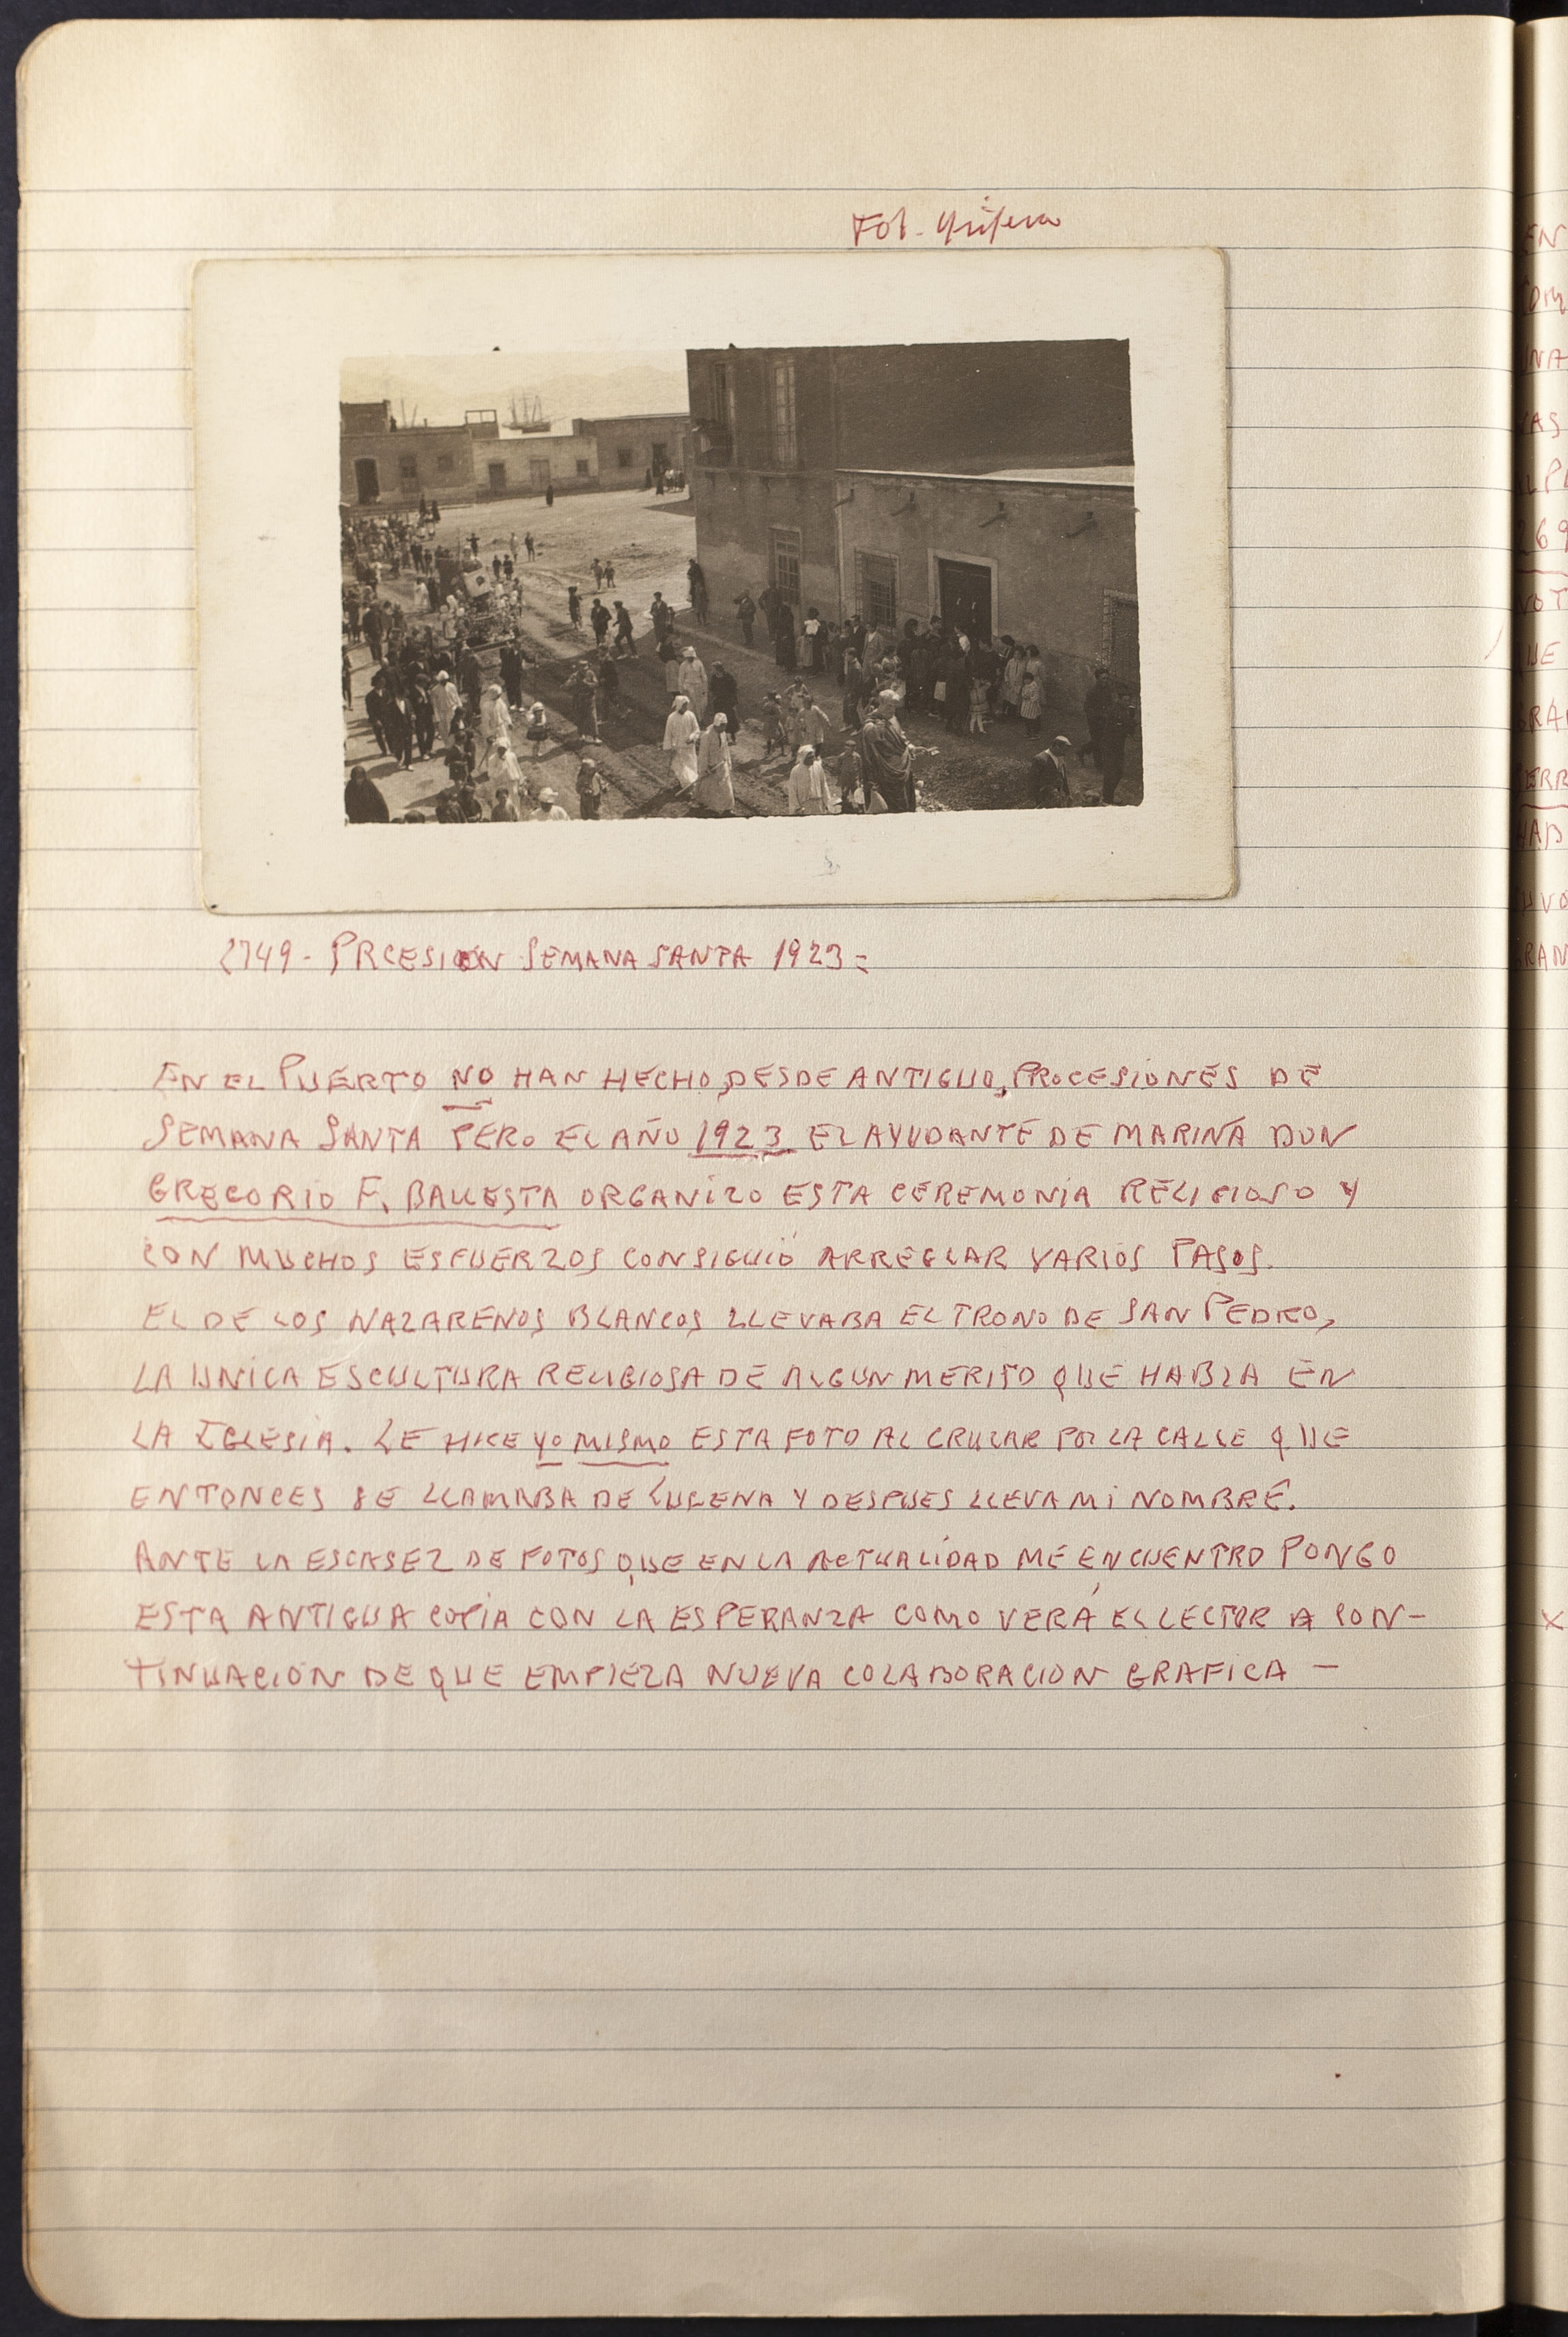 Fot.
2749- PRCESION SEMANA SANTA 1923=
EN EL PUERTO NO HAN HECHO, DESDE ANTIGUO, PROCESIONES DE
SEMANA SANTA PERO EL AÑO 1923 EL AYUDANTE DE MARINA DON
GREGORIO F. BALLESTA ORGANIZO ESTA CEREMONIA RELIGIOSO Y
CON MUCHOS ESFUERZOS CONSIGUIÓ ARREGLAR VARIOS PASOS.
EL DE LOS NAZARENOS BLANCOS LLEVABA EL TRONO DE SAN PEDRO,
LA UNICA ESCULTURA RELIGIOSA DE ALGUN MERITO QUE HABIA EN
LA IGLESIA. LE HICE YO MISMO ESTA FOTO AL CRUZAR POR LA CALLE QUE
ENTONCES SE LLAMABA DE LUCENA Y DESPUES LLEVA MI NOMBRE.
ANTE LA ESCASEZ DE FOTOS QUE EN LA ACTUALIDAD ME ENCUENTRO PONGO
ESTA ANTIGUA COPIA CON LA ESPERANZA COMO VERÁ EL LECTOR A CON-
TINUACION DE QUE EMPIEZA NUEVA COLABORACION GRAFICA -